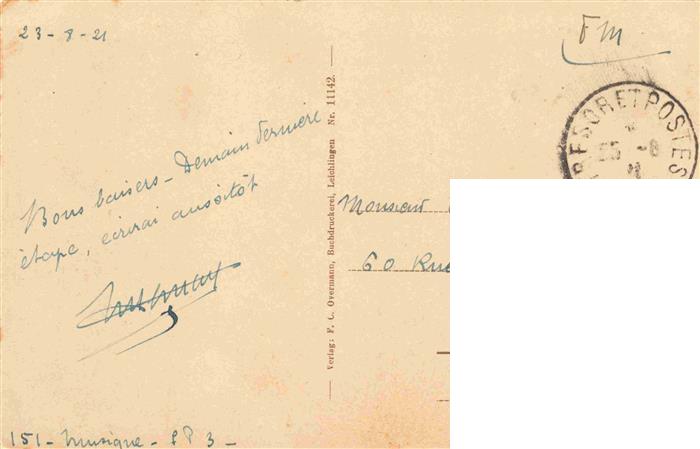 23-8-21
FM
TRESOR ET POSTES
25 -8
21
Bons baisers - Demain dernière
étape, écrirai aussitôt
Verlag: F. C. Overmann, Buchdruckerei, Leichlingen Nr. 11142.
Monsieur
60 Rue
151 - musique - SP 3 -